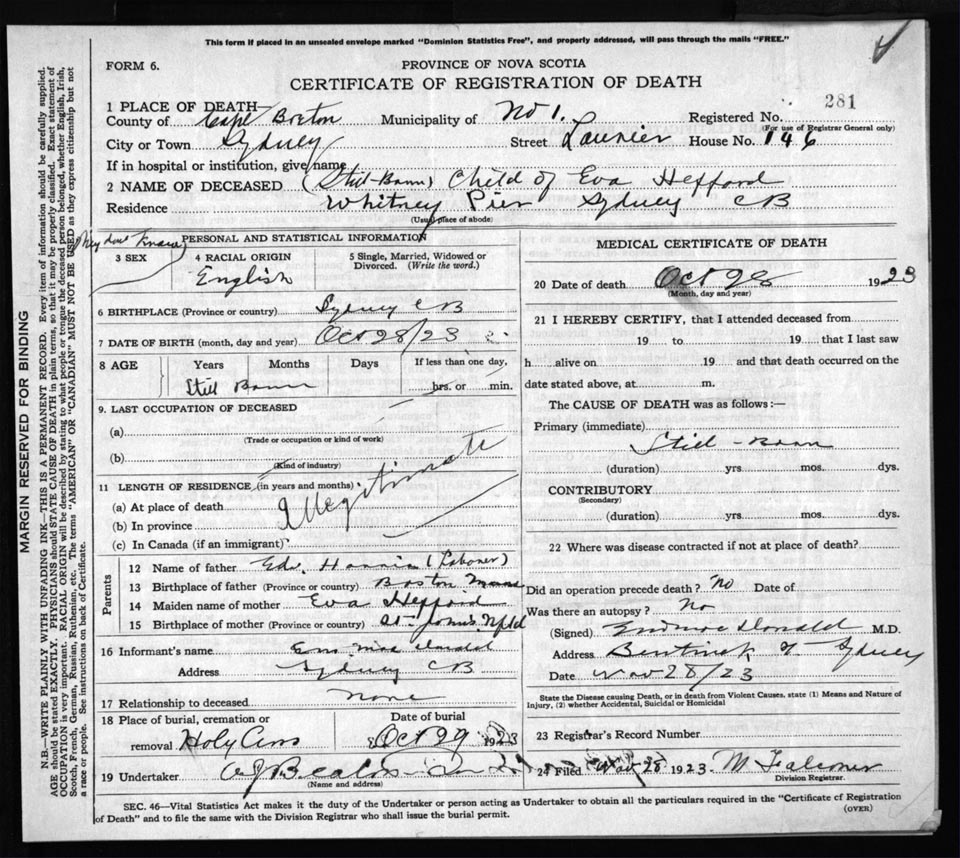 This form if placed in an unsealed envelope marked "Dominion Statistics Free", and properly addressed, will pass through the mails "FREE."
FORM 6.
PROVINCE OF NOVA SCOTIA
CERTIFICATE OF REGISTRATION OF DEATH
281
1 PLACE OF DEATH—
County of Cape Breton Municipality of No 1. Registered No.
(For use of Registrar General only)
City or Town Sydney Street Laurier House No. 146
If in hospital or institution, give name
2 NAME OF DECEASED (Still-Born) Child of Eva Hefford
Residence Whitney Pier Sydney CB
(Usual place of abode)
PERSONAL AND STATISTICAL INFORMATION
They dont Know
3 SEX
4 RACIAL ORIGIN
English
5 Single, Married, Widowed or Divorced. (Write the word.)
6 BIRTHPLACE (Province or country) Sydney CB
7 DATE OF BIRTH (month, day and year) Oct 28/23
8 AGE Years Months Days If less than one day,
Still Born hrs. or min.
9. LAST OCCUPATION OF DECEASED
(a)
(Trade or occupation or kind of work)
(b)
(Kind of industry)
11 LENGTH OF RESIDENCE (in years and months)
Illegitimate
(a) At place of death
(b) In province
(c) In Canada (if an immigrant)
Parents
12 Name of father Edw. Harris (Laborer)
13 Birthplace of father (Province or country) Boston Mass
14 Maiden name of mother Eva Hefford
15 Birthplace of mother (Province or country) St. Johns Nfld
16 Informant's name
Address Sydney CB
17 Relationship to deceased none
18 Place of burial, cremation or removal Holy Cross
Date of burial
Oct 29 1923
19 Undertaker
(Name and address)
MEDICAL CERTIFICATE OF DEATH
20 Date of death Oct 28 1923
(Month, day and year)
21 I HEREBY CERTIFY, that I attended deceased from
19 to 19 that I last saw
h alive on 19 and that death occurred on the
date stated above, at m.
The CAUSE OF DEATH was as follows:—
Primary (immediate)
Still-Born
(duration) yrs. mos. dys.
CONTRIBUTORY
(Secondary)
(duration) yrs. mos. dys.
22 Where was disease contracted if not at place of death?
Did an operation precede death? No Date of
Was there an autopsy? No
(Signed) MacDonald M.D.
Address Sydney
Date Nov 28/23
State the Disease causing Death, or in death from Violent Causes, state (1) Means and Nature of
Injury, (2) whether Accidental, Suicidal or Homicidal
23 Registrar's Record Number
24 Filed Nov 28 1923 M Falconer
Division Registrar.
SEC. 46—Vital Statistics Act makes it the duty of the Undertaker or person acting as Undertaker to obtain all the particulars required in the "Certificate of Registration
of Death" and to file the same with the Division Registrar who shall issue the burial permit.
(OVER)
MARGIN RESERVED FOR BINDING
N.B.—WRITE PLAINLY WITH UNFADING INK—THIS IS A PERMANENT RECORD. Every item of information should be carefully supplied.
AGE should be stated EXACTLY. PHYSICIANS should STATE CAUSE OF DEATH in plain terms, so that it may be properly classified. Exact statement of
OCCUPATION is very important. RACIAL ORIGIN will be described by stating to what people or tongue the deceased person belonged, whether English, Irish,
Scotch, French, German, Russian, Ruthenian, etc. The terms "AMERICAN" OR "CANADIAN" MUST NOT BE USED as they express citizenship but not
a race or people. See instructions on back of Certificate.